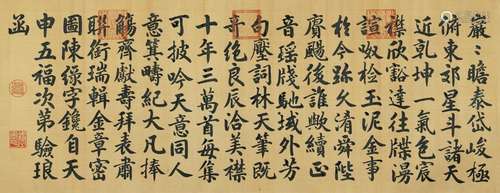 巖〻瞻泰岱峻極
俯東郊星斗諸天
近乾坤一氣包宸
襟欣豁達往牒漫
諠呶檢玉泥金事
於今弥久淆舜陛
賡颺後誰歟續正
音瑶牋馳域外芳
句壓詞林天筆既
奇絶良辰洽美襟
十年三萬首每集
可披吟天意同人
意箕疇紀大凡捧
觴齊獻壽拜表肅
聯銜瑞輯金章密
圖陳緑字鑱自天
申五福次第驗琅
函